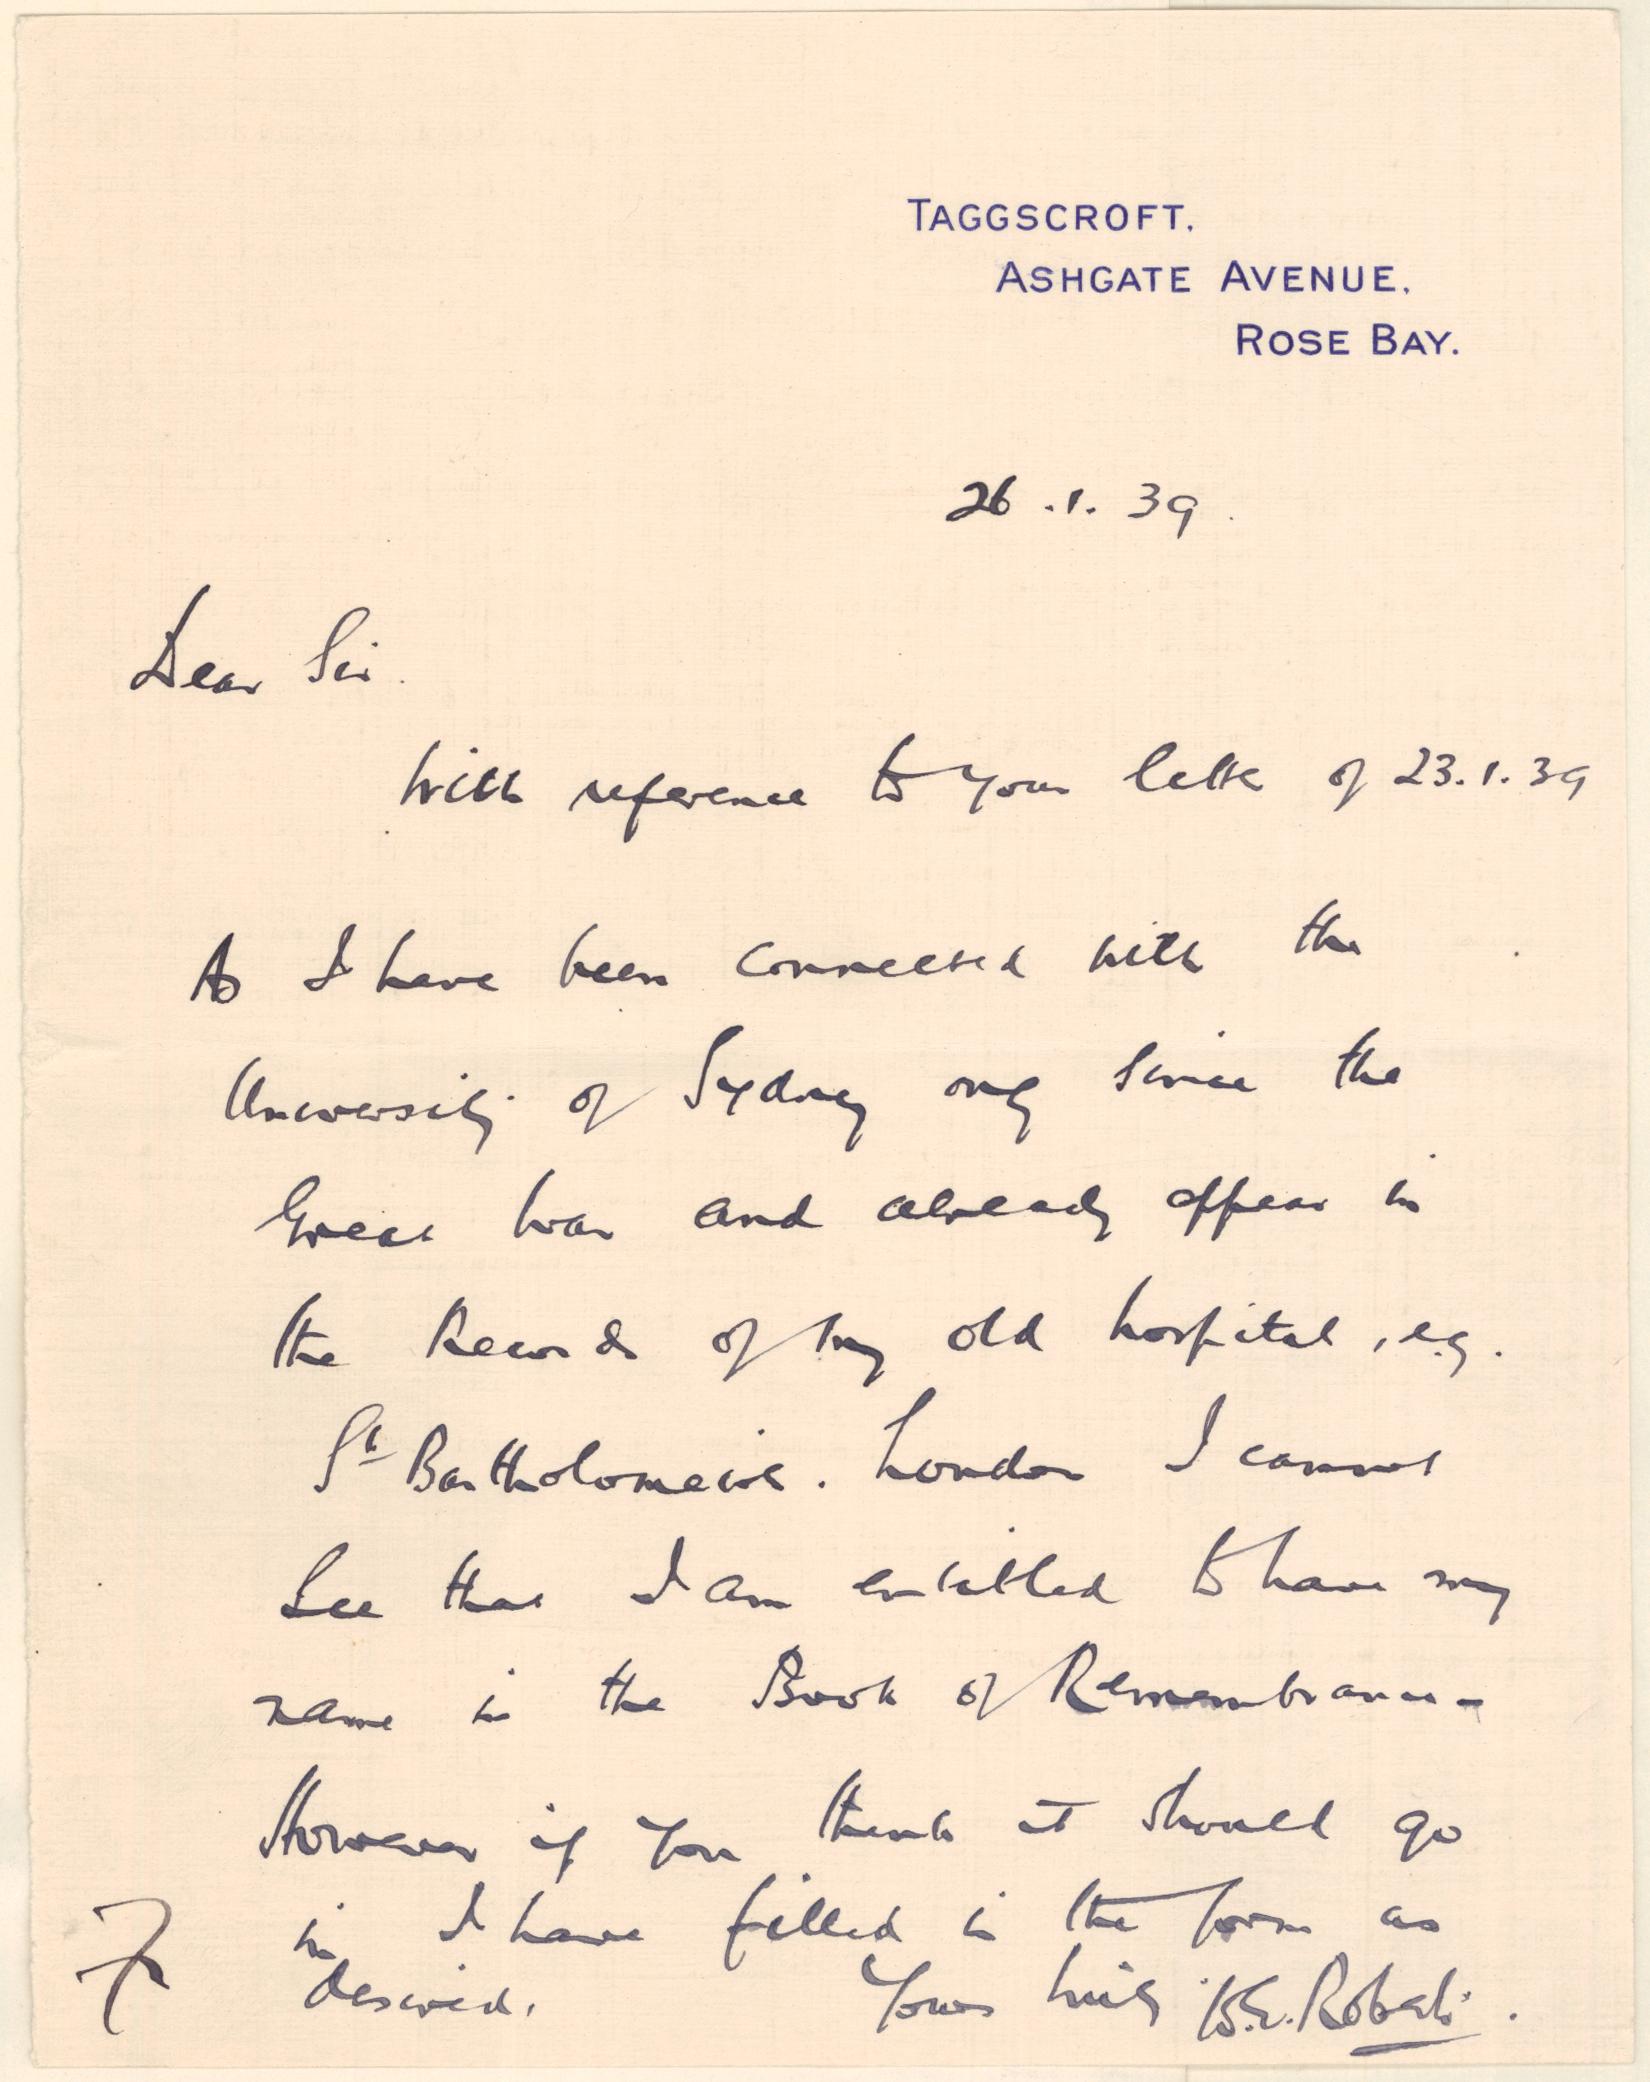 TAGGSCROFT.
ASHGATE AVENUE.
ROSE BAY.
26.1.39.
Dear Sir.
With reference to your letter of 23.1.39
As I have been connected with the
University of Sydney only since the
Great War and already appear in
the Records of my old hospital, e.g.
St Bartholomews. London I cannot
see that I am entitled to have my
name in the Book of Remembrance-
However if you think it should go
in I have filled in the form as
desired.
Yours truly
Roberts.